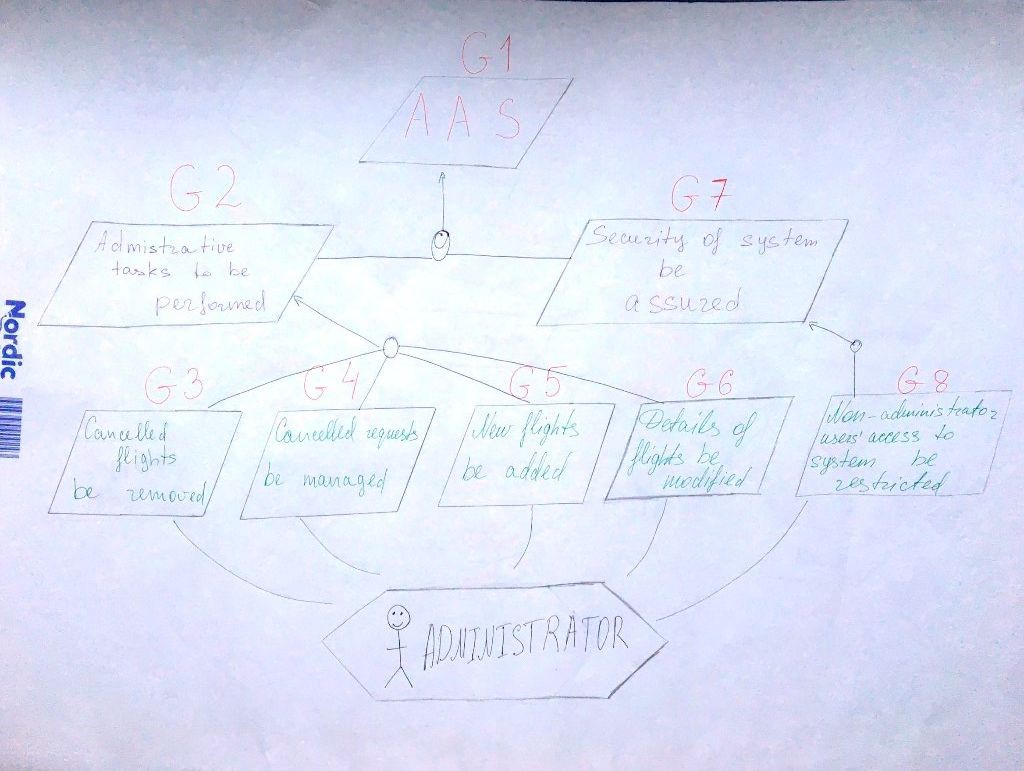 G1
AAS
G2
Admistrative
tasks to be
performed
G7
Security of system
be
assured
Nordic
G3
Cancelled
flights
be removed
G4
Cancelled requests
be managed
G5
New flights
be added
G6
Details of
flights be
modified
G8
Non-administrator
users' access to
system be
restricted
ADMINISTRATOR